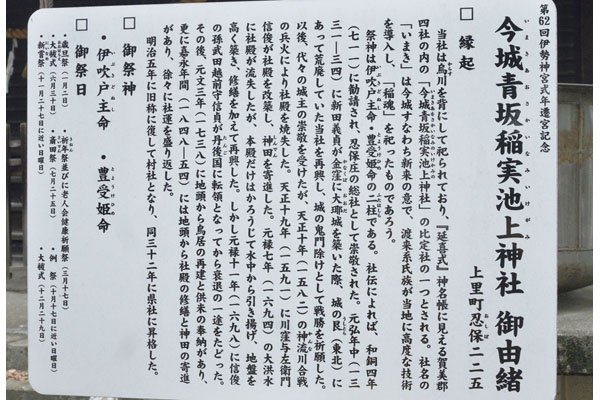 第62回伊勢神宮式年遷宮記念
今城青坂稲実池上神社 御由緒
いまきあおさかいなみいけがみ
上里町忍保二二五
おしぼ
□ 縁起
当社は烏川を背にして祀られており、『延喜式』神名帳に見える賀美郡
四社の内の「今城青坂稲実池上神社」の比定社の一つとされる。社名の
「いまき」は今城すなわち新来の意で、渡来系氏族が当地に高度な技術
を導入し、「稲魂」を祀ったものであろう。
祭神は伊吹戸主命・豊受姫命の二柱である。社伝によれば、和銅四年
(七一一)に勧請され、忍保庄の総社として崇敬された。元弘年中(一三
三一―三四)に新田義貞が金窪に大堀城を築いた際、城の艮(東北)に
あって荒廃していた当社を再興し、城の鬼門除けとして戦勝を祈願した。
以後、代々の城主の崇敬を受けたが、天正十年(一五八二)の神流川合戦
の兵火により社殿を焼失した。天正十九年(一五九一)に川窪与左衛門
信俊が社殿を改築し、神田を寄進した。元禄七年(一六九四)の大洪水
に社殿が流失したが、本殿だけはかろうじて水中から引き揚げ、地盤を
高く築き、修繕を加えて再興した。しかし元禄十一年(一六九八)に信俊
の孫武田越前守信貞が丹後国に転領となってから衰退の一途をたどった。
その後、元文三年(一七三八)に地頭から鳥居の再建と供米の奉納があり、
更に嘉永年間(一八四八―五四)には地頭から社殿の修繕と神田の寄進
があり、徐々に社運を盛り返した。
明治五年に旧称に復して村社となり、同三十二年に県社に昇格した。
□ 御祭神
・伊吹戸主命 ・豊受姫命
いぶきどぬし とようけひめ
□ 御祭日
・歳旦祭(一月二日) ・祈年祭並びに老人会健康祈願祭(三月十七日)
・大祓式(六月三十日) ・斎田祭(七月二十五日) ・例祭(十月十七日に近い日曜日)
・新嘗祭(十一月二十七日に近い日曜日) ・大祓式(十二月二十九日)